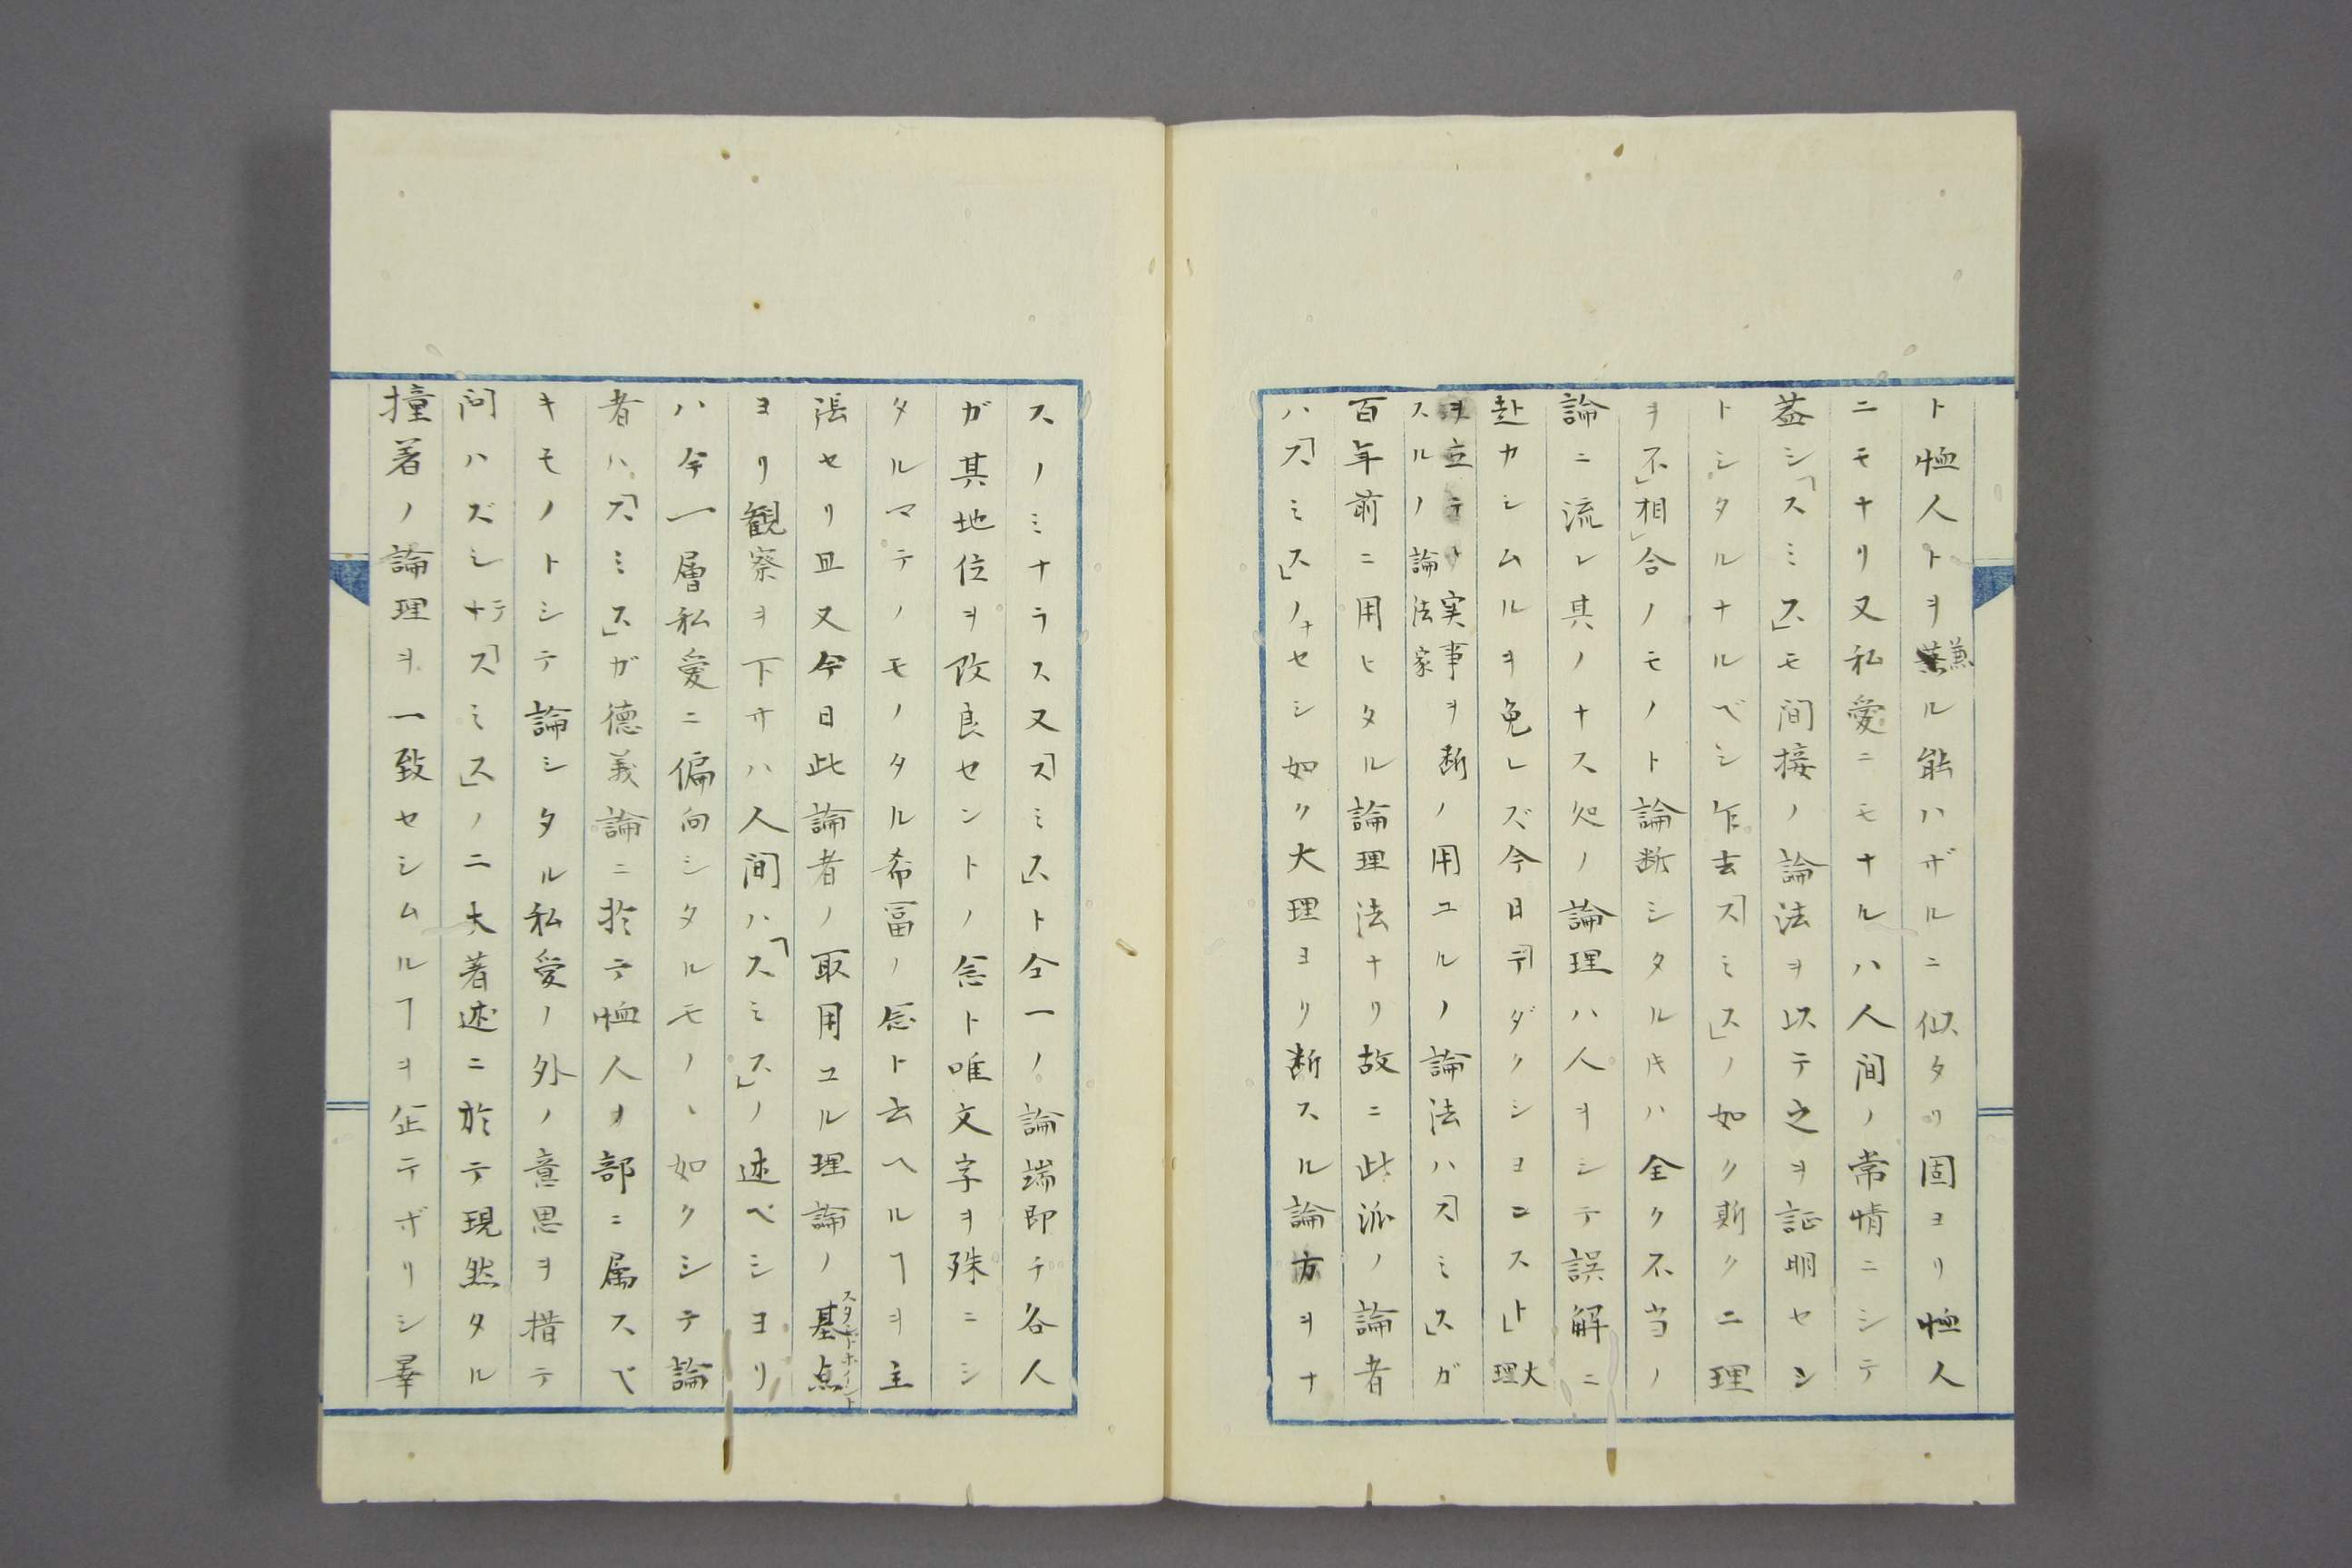 ト恤人トヲ兼ル能ハザルニ似タリ固ヨリ恤人
ニモナリ又私愛ニモナルハ人間ノ常情ニシテ
蓋シ「スミス」モ間接ノ論法ヲ以テ之ヲ証明セン
トシタルナルベシ乍去「スミス」ノ如ク斯ク二理
ヲ不」相」合ノモノト論断シタルキハ全ク不当ノ
論ニ流レ其ノナス処ノ論理ハ人ヲシテ誤解ニ
赴カシムルヲ免レズ今日「デダクシヨニスト」大理
ヲ立テヽ実事ヲ断
スルノ論法家ノ用ユルノ論法ハ「スミス」ガ
百年前ニ用ヒタル論理法ナリ故ニ此派ノ論者
ハ「スミス」ノナセシ如ク大理ヨリ断スル論方ヲナ
スノミナラス又「スミス」ト仝一ノ論端即チ各人
ガ其地位ヲ改良セントノ念ト唯文字ヲ殊ニシ
タルマテノモノタル希冨ノ念ト云ヘルヿヲ主
張セリ且又今日此論者ノ取用ユル理論ノ基点
スタンドポイント
ヨリ観察ヲ下サハ人間ハ「スミス」ノ述ベシヨリ
ハ今一層私愛ニ偏向シタルモノヽ如クシテ論
者ハ「スミス」ガ德義論ニ於テ恤人ノ部ニ属スベ
キモノトシテ論シタル私愛ノ外ノ意思ヲ措テ
問ハズシテ「スミス」ノ二大著述ニ於テ現然タル
撞着ノ論理ヲ一致セシムルヿヲ企テボリシ畢